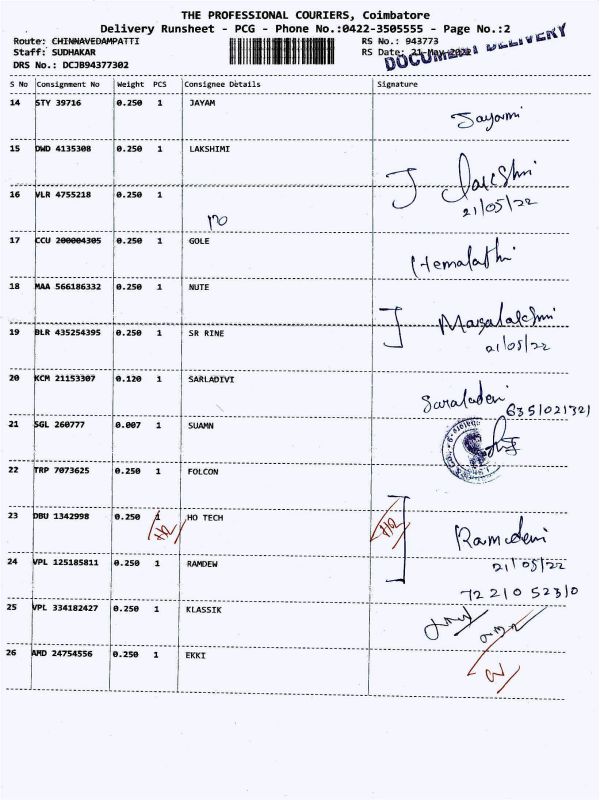 THE PROFESSIONAL COURIERS, Coimbatore
Delivery Runsheet - PCG - Phone No.:0422-3505555 - Page No.:2
Route: CHINNAVEDAMPATTI
RS No.: 943773
Staff: SUDHAKAR
RS Date: 21-May-2022
DOCUMENT DELIVERY
DRS No.: DCJB94377302
S No Consignment No Weight PCS Consignee Details Signature
14 STY 39716 0.250 1 JAYAM
Jayami
15 DWD 4135308 0.250 1 LAKSHIMI
Lakshmi
21/05/22
16 VLR 4755218 0.250 1
17 CCU 200004305 0.250 1 GOLE
Hemalathi
18 MAA 566186332 0.250 1 NUTE
19 BLR 435254395 0.250 1 SR RINE
21/05/22
20 KCM 21153307 0.120 1 SARLADIVI
Saraladevi
6351021321
21 SGL 260777 0.007 1 SUAMN
22 TRP 7073625 0.250 1 FOLCON
23 DBU 1342998 0.250 1 HO TECH
Ramdevi
24 VPL 125185811 0.250 1 RAMDEW
21/05/22
72210 52310
25 VPL 334182427 0.250 1 KLASSIK
26 AMD 24754556 0.250 1 EKKI